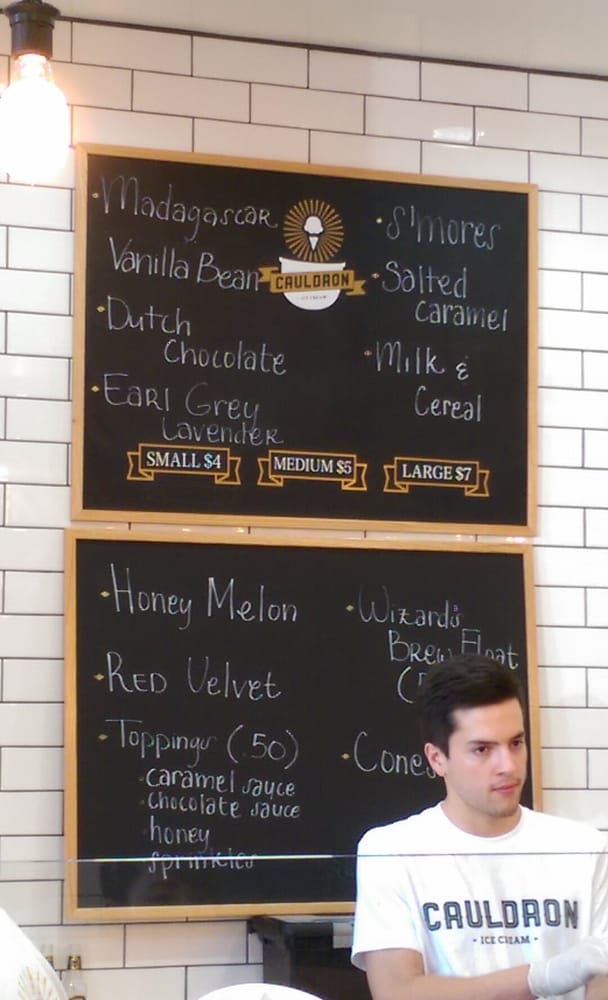 Madagascar
Vanilla Bean
Dutch
Chocolate
Earl Grey
Lavender
CAULDRON
ICE CREAM
S'mores
Salted
Caramel
Milk &
Cereal
SMALL $4
MEDIUM $5
LARGE $7
Honey Melon
Red Velvet
Toppings (.50)
caramel sauce
chocolate sauce
honey
sprinkles
Wizard's
Brew Float
Cones
CAULDRON
- ICE CREAM -